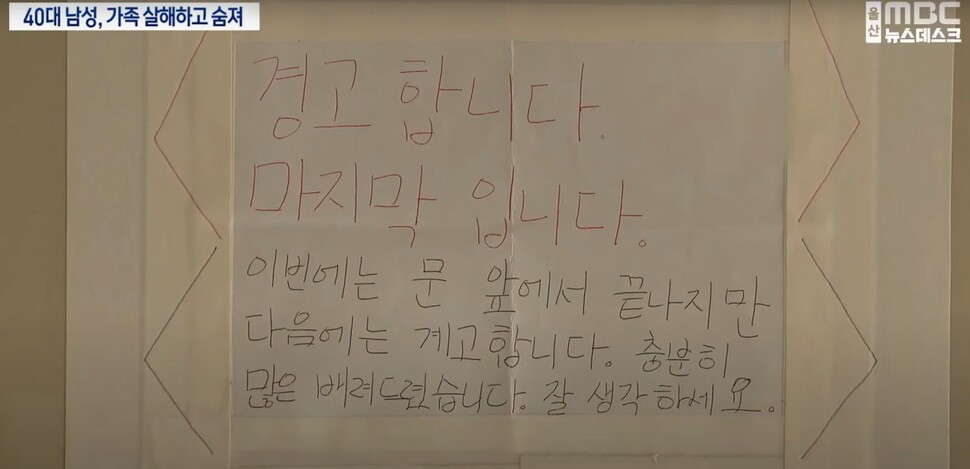 40대 남성, 가족 살해하고 숨져
울산 MBC
뉴스데스크
경고 합니다.
마지막 입니다.
이번에는 문 앞에서 끝나지만
다음에는 계고합니다. 충분히
많은 배려드렸습니다. 잘 생각하세요.